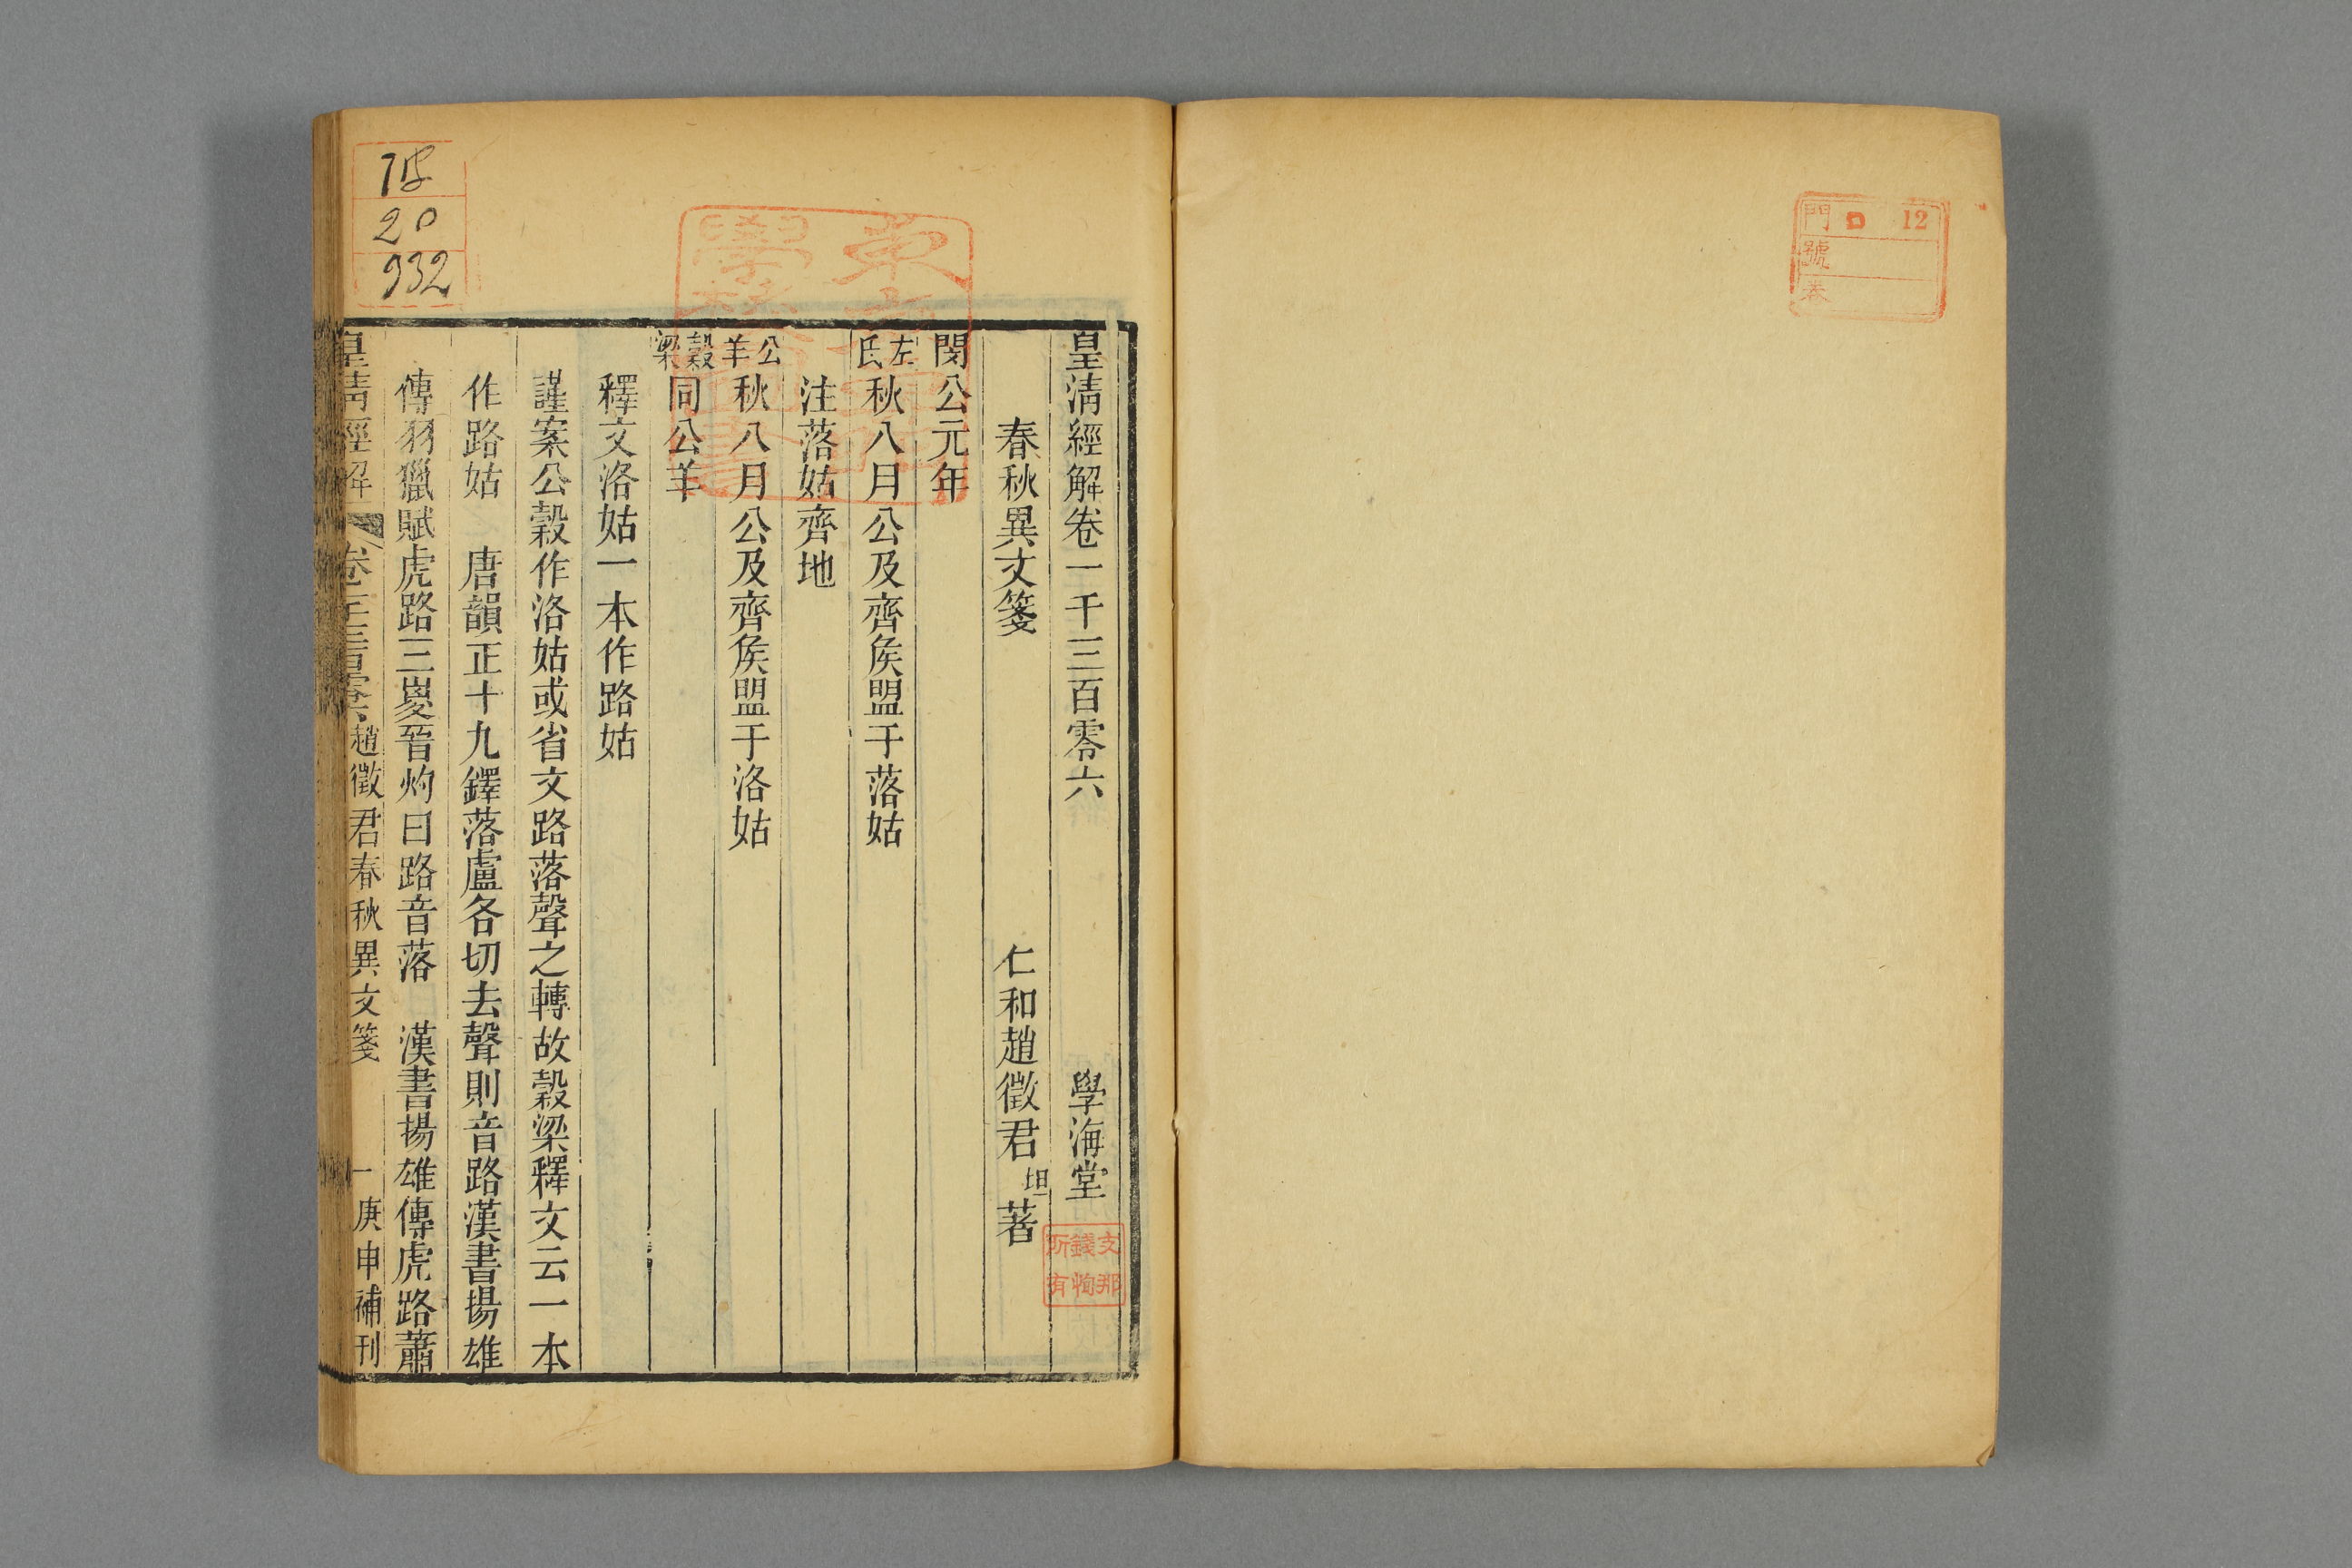 門 ロ 12
號
巻
皇清經解卷一千三百零六 學海堂
春秋異文箋 仁和趙徵君坦著
閔公元年
左氏秋八月公及齊矦盟于落姑
注落姑齊地
公羊秋八月公及齊矦盟于洛姑
穀梁同公羊
釋文洛姑一本作路姑
謹案公穀作洛姑或省文路落聲之轉故穀梁釋文云一本
作路姑 唐韻正十九鐸落盧各切去聲則音路漢書揚雄
傳羽獵賦虎路三嵏晉灼曰路音落 漢書揚雄傳虎路蕭
皇清經解 卷一千三百零六 趙徵君春秋異文箋 一 庚申補刊
支那
錢恂
所有
20
932